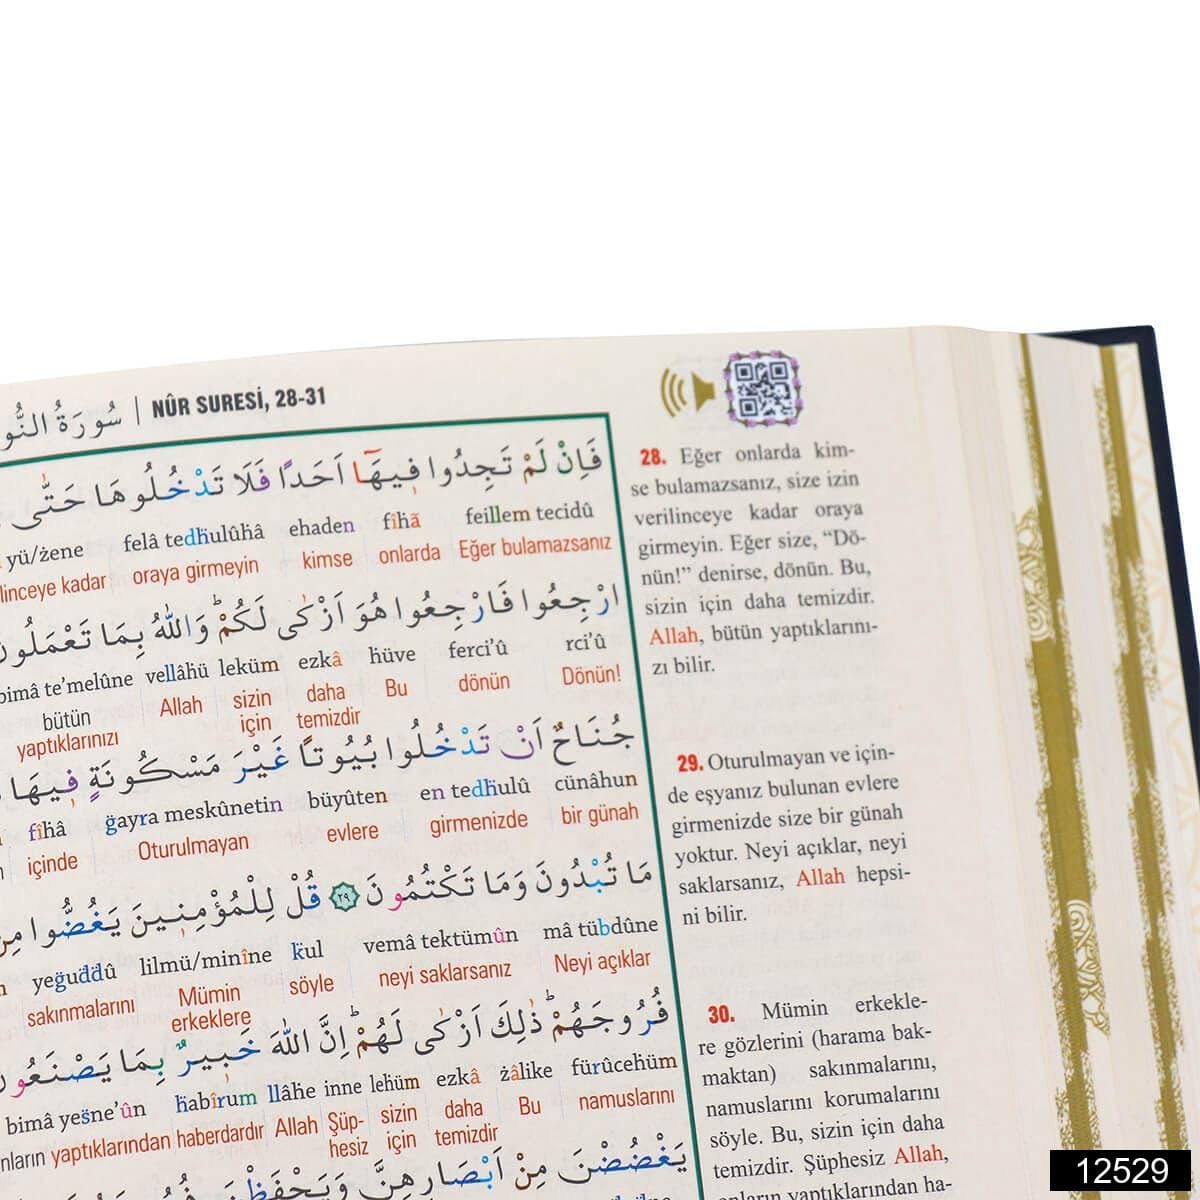 سُورَةُ النُّو | NÛR SURESİ, 28-31
فَاِنْ لَمْ تَجِدُوا ف۪يهَٓا اَحَدًا فَلَا تَدْخُلُوهَا حَتّٰى
yü/żene felâ tedḣulûhâ ehaden fîhâ feillem tecidû
linceye kadar oraya girmeyin kimse onlarda Eğer bulamazsanız
ارْجِعُوا فَارْجِعُوا هُوَ اَزْكٰى لَكُمْۜ وَاللّٰهُ بِمَا تَعْمَلُونَ
bimâ te’melûne vellâhü leküm ezkâ hüve ferci’û rci’û
bütün yaptıklarınızı Allah sizin için daha temizdir Bu dönün Dönün!
جُنَاحٌ اَنْ تَدْخُلُوا بُيُوتًا غَيْرَ مَسْكُونَةٍ ف۪يهَا
fîhâ ğayra meskûnetin büyûten en tedḣulû cünâhun
içinde Oturulmayan evlere girmenizde bir günah
مَا تُبْدُونَ وَمَا تَكْتُمُونَ ﴿٢٩﴾ قُلْ لِلْمُؤْمِن۪ينَ يَغُضُّوا مِنْ
yeğuddû lilmü/minîne kul vemâ tektümûn mâ tübdûne
sakınmalarını Mümin erkeklere söyle neyi saklarsanız Neyi açıklar
فُرُوجَهُمْۜ ذٰلِكَ اَزْكٰى لَهُمْۜ اِنَّ اللّٰهَ خَب۪يرٌ بِمَا يَصْنَعُونَ
bimâ yesne’ûn ḣabîrum llâhe inne lehüm ezkâ żâlike fürûcehüm
nların yaptıklarından haberdardır Allah Şüphesiz sizin için daha temizdir Bu namuslarını
يَغْضُضْنَ مِنْ اَبْصَارِهِنَّ وَيَحْفَظْنَ
28. Eğer onlarda kim-
se bulamazsanız, size izin
verilinceye kadar oraya
girmeyin. Eğer size, “Dö-
nün!” denirse, dönün. Bu,
sizin için daha temizdir.
Allah, bütün yaptıklarını-
zı bilir.
29. Oturulmayan ve için-
de eşyanız bulunan evlere
girmenizde size bir günah
yoktur. Neyi açıklar, neyi
saklarsanız, Allah hepsi-
ni bilir.
30. Mümin erkekle-
re gözlerini (harama bak-
maktan) sakınmalarını,
namuslarını korumalarını
söyle. Bu, sizin için daha
temizdir. Şüphesiz Allah,
onların yaptıklarından ha-
12529